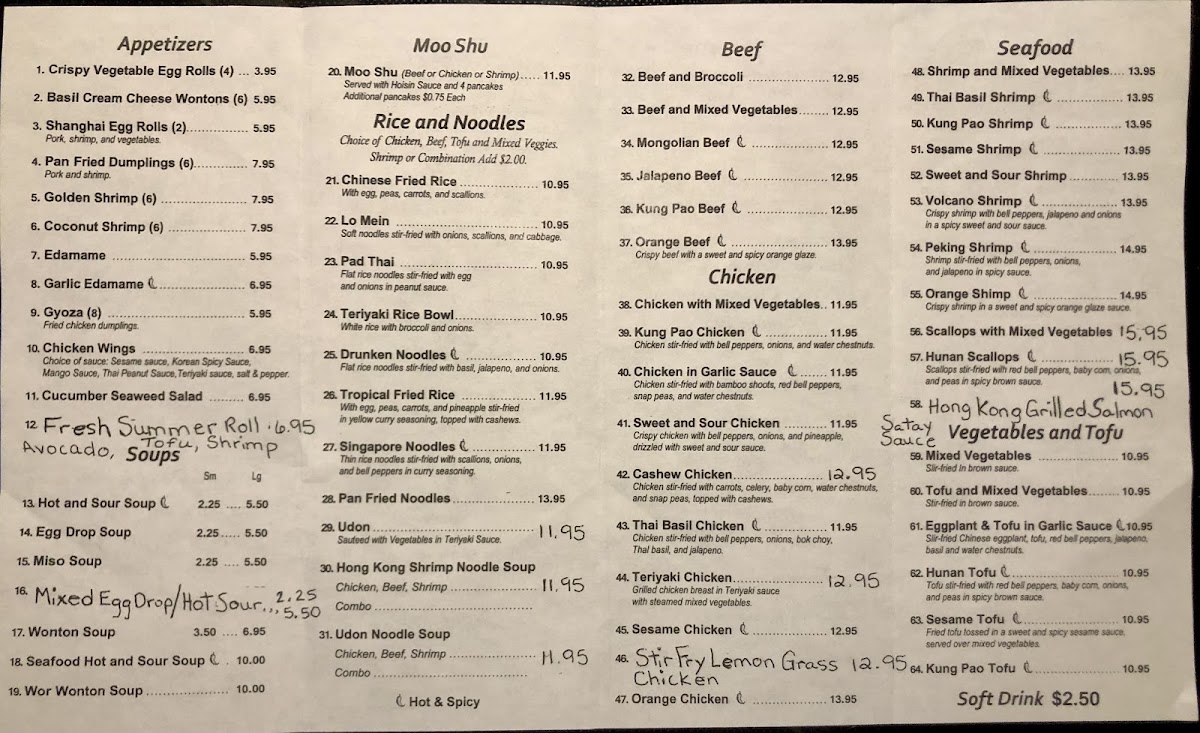 Appetizers
1. Crispy Vegetable Egg Rolls (4) ... 3.95
2. Basil Cream Cheese Wontons (6) 5.95
3. Shanghai Egg Rolls (2)................ 5.95
Pork, shrimp, and vegetables.
4. Pan Fried Dumplings (6).............. 7.95
Pork and shrimp.
5. Golden Shrimp (6) ..................... 7.95
6. Coconut Shrimp (6) .................... 7.95
7. Edamame ................................. 5.95
8. Garlic Edamame ....................... 6.95
9. Gyoza (8) ................................. 5.95
Fried chicken dumplings.
10. Chicken Wings ........................ 6.95
Choice of sauce: Sesame sauce, Korean Spicy Sauce,
Mango Sauce, Thai Peanut Sauce, Teriyaki sauce, salt & pepper.
11. Cucumber Seaweed Salad ........ 6.95
12. Fresh Summer Roll . 6.95
Avocado, Tofu, Shrimp
Soups
Sm Lg
13. Hot and Sour Soup 2.25 .... 5.50
14. Egg Drop Soup 2.25..... 5.50
15. Miso Soup 2.25 .... 5.50
16. Mixed Egg Drop/Hot Sour... 2.25
5.50
17. Wonton Soup 3.50 .... 6.95
18. Seafood Hot and Sour Soup . 10.00
19. Wor Wonton Soup ................. 10.00
Moo Shu
20. Moo Shu (Beef or Chicken or Shrimp)..... 11.95
Served with Hoisin Sauce and 4 pancakes
Additional pancakes $0.75 Each
Rice and Noodles
Choice of Chicken, Beef, Tofu and Mixed Veggies.
Shrimp or Combination Add $2.00.
21. Chinese Fried Rice ..................... 10.95
With egg, peas, carrots, and scallions.
22. Lo Mein ................................... 10.95
Soft noodles stir-fried with onions, scallions, and cabbage.
23. Pad Thai .................................. 10.95
Flat rice noodles stir-fried with egg
and onions in peanut sauce.
24. Teriyaki Rice Bowl..................... 10.95
White rice with broccoli and onions.
25. Drunken Noodles ..................... 10.95
Flat rice noodles stir-fried with basil, jalapeno, and onions.
26. Tropical Fried Rice .................... 11.95
With egg, peas, carrots, and pineapple stir-fried
in yellow curry seasoning, topped with cashews.
27. Singapore Noodles ................... 11.95
Thin rice noodles stir-fried with scallions, onions,
and bell peppers in curry seasoning.
28. Pan Fried Noodles..................... 13.95
29. Udon ....................................... 11.95
Sauteed with Vegetables in Teriyaki Sauce.
30. Hong Kong Shrimp Noodle Soup
Chicken, Beef, Shrimp ..................... 11.95
Combo .......................................
31. Udon Noodle Soup
Chicken, Beef, Shrimp ..................... 11.95
Combo .......................................
Hot & Spicy
Beef
32. Beef and Broccoli ..................... 12.95
33. Beef and Mixed Vegetables........ 12.95
34. Mongolian Beef ....................... 12.95
35. Jalapeno Beef ......................... 12.95
36. Kung Pao Beef ........................ 12.95
37. Orange Beef ........................... 13.95
Crispy beef with a sweet and spicy orange glaze.
Chicken
38. Chicken with Mixed Vegetables.. 11.95
39. Kung Pao Chicken ................... 11.95
Chicken stir-fried with bell peppers, onions, and water chestnuts.
40. Chicken in Garlic Sauce ......... 11.95
Chicken stir-fried with bamboo shoots, red bell peppers,
snap peas, and water chestnuts.
41. Sweet and Sour Chicken .......... 11.95
Crispy chicken with bell peppers, onions, and pineapple,
drizzled with sweet and sour sauce.
42. Cashew Chicken..................... 12.95
Chicken stir-fried with carrots, celery, baby corn, water chestnuts,
and snap peas, topped with cashews.
43. Thai Basil Chicken ................. 11.95
Chicken stir-fried with bell peppers, onions, bok choy,
Thai basil, and jalapeno.
44. Teriyaki Chicken..................... 12.95
Grilled chicken breast in Teriyaki sauce
with steamed mixed vegetables.
45. Sesame Chicken ..................... 12.95
46. Stir Fry Lemon Grass 12.95
Chicken
47. Orange Chicken ..................... 13.95
Seafood
48. Shrimp and Mixed Vegetables.... 13.95
49. Thai Basil Shrimp ................... 13.95
50. Kung Pao Shrimp ................... 13.95
51. Sesame Shrimp ...................... 13.95
52. Sweet and Sour Shrimp ............ 13.95
53. Volcano Shrimp ...................... 13.95
Crispy shrimp with bell peppers, jalapeno and onions
in a spicy sweet and sour sauce.
54. Peking Shrimp ....................... 14.95
Shrimp stir-fried with bell peppers, onions,
and jalapeno in spicy sauce.
55. Orange Shimp ....................... 14.95
Crispy shrimp in a sweet and spicy orange glaze sauce.
56. Scallops with Mixed Vegetables 15,95
57. Hunan Scallops ..................... 15.95
Scallops stir-fried with red bell peppers, baby corn, onions,
and peas in spicy brown sauce.
15.95
58. Hong Kong Grilled Salmon
Satay
Sauce
Vegetables and Tofu
59. Mixed Vegetables .................... 10.95
Stir-fried in brown sauce.
60. Tofu and Mixed Vegetables....... 10.95
Stir-fried in brown sauce.
61. Eggplant & Tofu in Garlic Sauce 10.95
Stir-fried Chinese eggplant, tofu, red bell peppers, jalapeno,
basil and water chestnuts.
62. Hunan Tofu ........................... 10.95
Tofu stir-fried with red bell peppers, baby corn, onions,
and peas in spicy brown sauce.
63. Sesame Tofu ......................... 10.95
Fried tofu tossed in a sweet and spicy sesame sauce,
served over mixed vegetables.
64. Kung Pao Tofu ....................... 10.95
Soft Drink $2.50